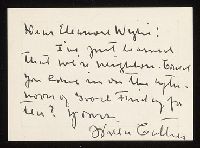 Dear Eleanor Wylie:
I've just learned
that we're neighbors. Could
you come in on the after-
noon of Good Friday for
tea? Yours